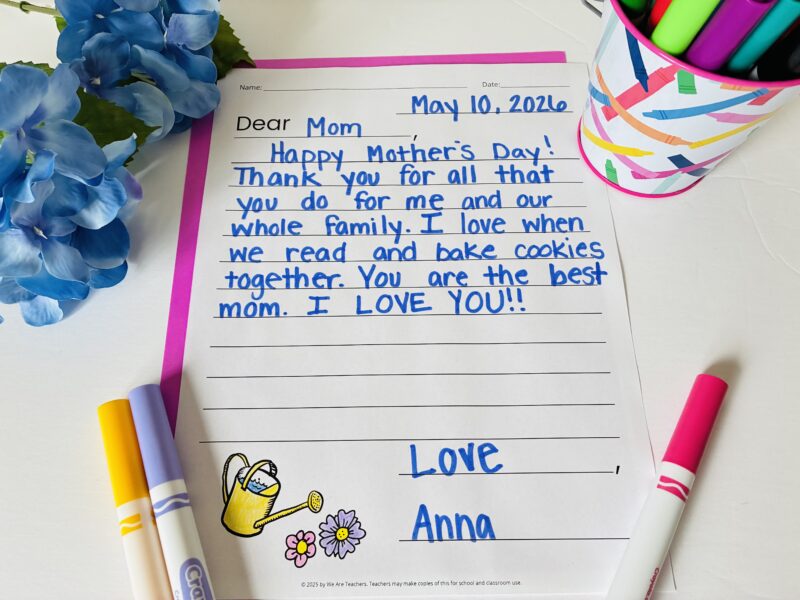 Name: Date:
May 10, 2026
Dear Mom,
Happy Mother's Day!
Thank you for all that
you do for me and our
whole family. I love when
we read and bake cookies
together. You are the best
mom. I LOVE YOU!!
Love,
Anna
© 2025 by We Are Teachers. Teachers may make copies of this for school and classroom use.